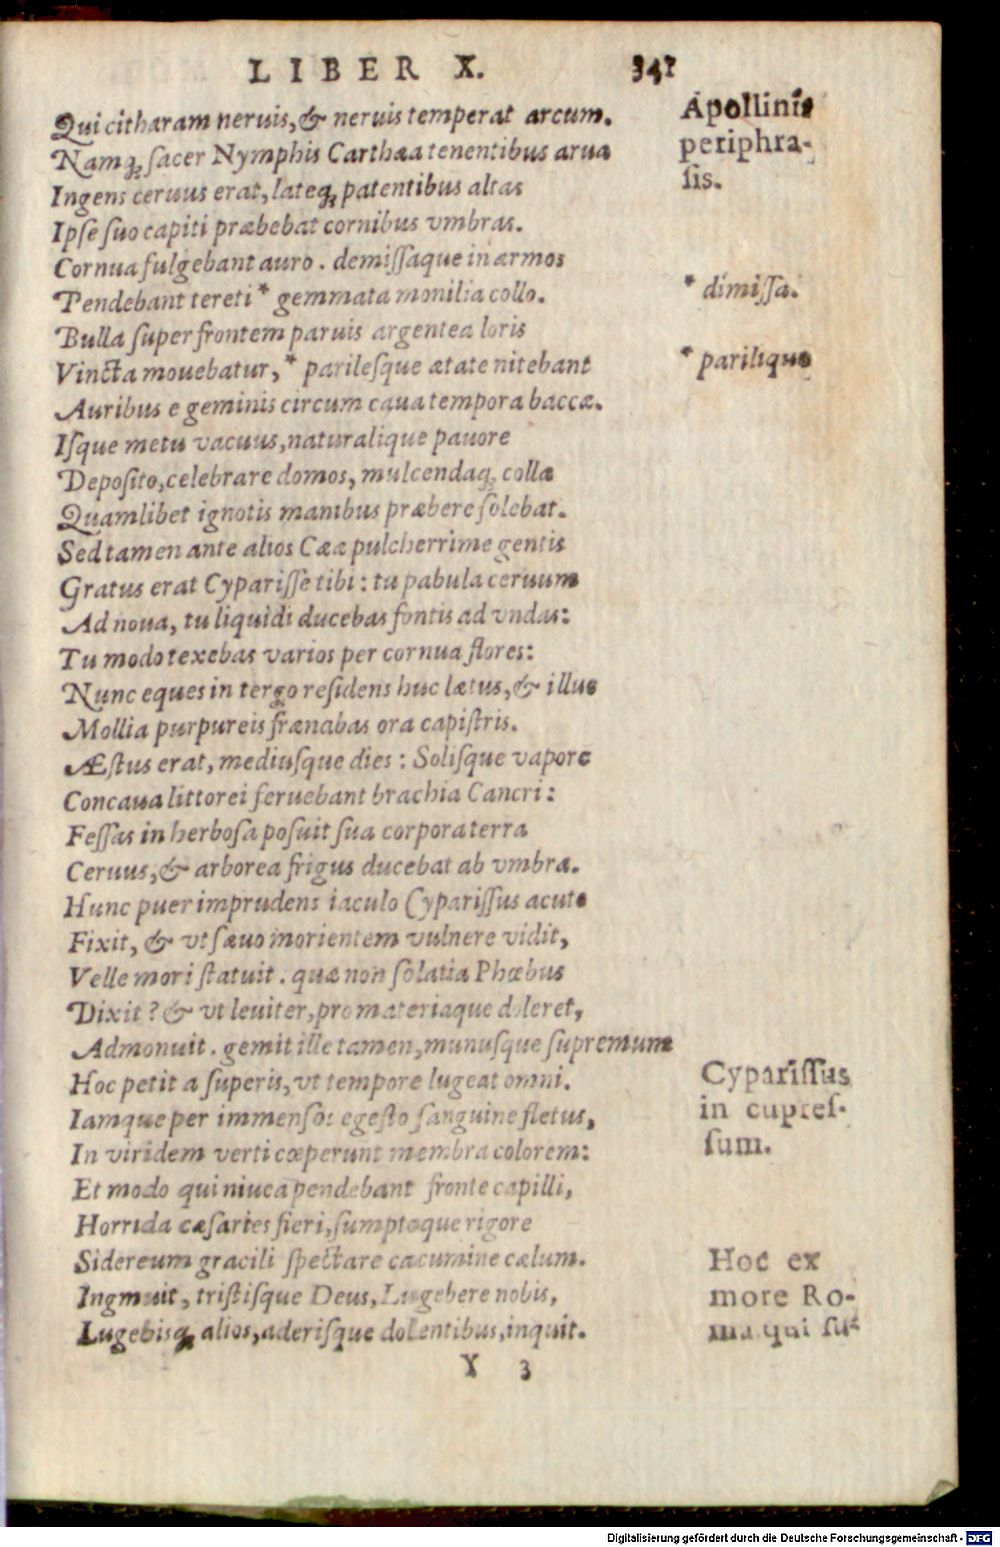 LIBER X. 341
Qui citharam neruis, & neruis temperat arcum.
Namq; sacer Nymphis Carthæa tenentibus arua
Ingens ceruus erat, lateq; patentibus altas
Ipse suo capiti præbebat cornibus vmbras.
Cornua fulgebant auro. demissaque in armos
Pendebant tereti * gemmata monilia collo.
Bulla super frontem paruis argentea loris
Vincta mouebatur, * parilesque ætate nitebant
Auribus e geminis circum caua tempora baccæ.
Isque metu vacuus, naturalique pauore
Deposito, celebrare domos, mulcendaq; colla
Quamlibet ignotis manibus præbere solebat.
Sed tamen ante alios Cææ pulcherrime gentis
Gratus erat Cyparisse tibi: tu pabula ceruum
Ad noua, tu liquidi ducebas fontis ad vndas:
Tu modo texebas varios per cornua flores:
Nunc eques in tergo residens huc lætus, & illuc
Mollia purpureis frænabas ora capistris.
Æstus erat, mediusque dies: Solisque vapore
Concaua littorei feruebant brachia Cancri:
Fessas in herbosa posuit sua corpora terra
Ceruus, & arborea frigus ducebat ab vmbra.
Hunc puer imprudens iaculo Cyparissus acuto
Fixit, & vt sæuo morientem vulnere vidit,
Velle mori statuit. quæ non solatia Phœbus
Dixit? & vt leuiter, pro materiaque doleret,
Admonuit. gemit ille tamen, munusque supremum
Hoc petit a superis, vt tempore lugeat omni.
Iamque per immensos egesto sanguine fletus,
In viridem verti cœperunt membra colorem:
Et modo qui niuea pendebant fronte capilli,
Horrida cæsaries fieri, sumptoque rigore
Sidereum gracili spectare cacumine cælum.
Ingmuit, tristisque Deus, Lugebere nobis,
Lugebisq; alios, aderisque dolentibus, inquit.
Y 3
Apollinis
periphra-
sis.
* dimissa.
* parilique
Cyparissus
in cupres-
sum.
Hoc ex
more Ro-
ma. qui su-
Digitalisierung gefördert durch die Deutsche Forschungsgemeinschaft - DFG